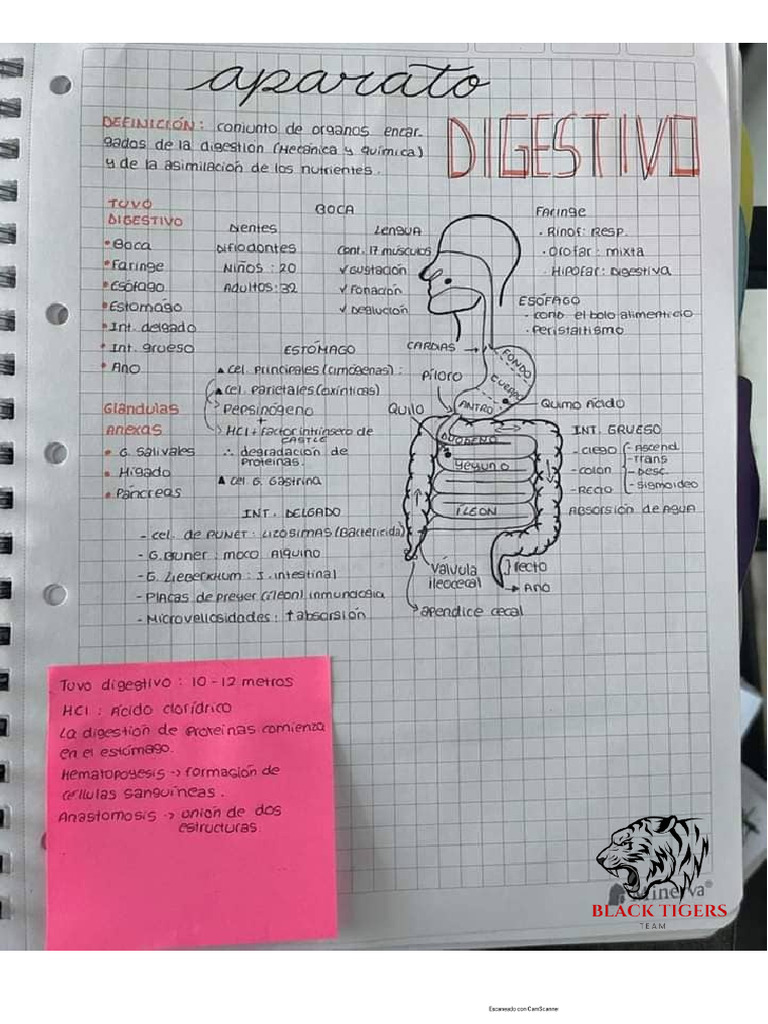 aparato
DIGESTIVO
DEFINICIÓN: conjunto de organos encar-
gados de la digestion (Mecánica y química)
y de la asimilación de los nutrientes.
TUVO
DIGESTIVO
• Boca
• Faringe
• Esófago
• Estomágo
• Int. delgado
• Int. grueso
• Ano
Glándulas
Anexas
• G. Salivales
• Hígado
• Páncreas
BOCA
Dientes
Difiodontes
Niños: 20
Adultos: 32
Lengua
Cont. 17 músculos
✓ Gustación
✓ Fonación
✓ Deglución
Faringe
· Rinof: Resp.
· Orofar: mixta
· Hipofar: Digestiva
ESÓFAGO
- cono el bolo alimenticio
· Peristaltismo
ESTÓMAGO
▲ Cel. Principales (cimógenas):
▲ Cel. Parietales (oxínticas)
Pepsinógeno
+
HCl + Factor intrínseco de
CASTLE
∴ degradación de
Proteínas.
▲ Cel. G. Gastrina
CARDIAS
Píloro
FONDO
CUERPO
ANTRO
Quimo Ácido
Quilo
DUODENO
Yeyuno
ÍLEON
INT. GRUESO
- ciego
- colon
- Recto
- Ascend
- Trans
- Desc.
- Sigmoideo
Absorsión de Agua
INT. DELGADO
- cel. de PUNET: LIZOSIMAS (Bactericida)
- G. Bruner: moco Alquino
- G. Lieberkhum: J. intestinal
- Placas de Preyer (íleon) inmunología
- Microvellosidades: ↑ absorsión
Válvula
ileocecal
recto
Ano
apendice cecal
Tuvo digestivo: 10 - 12 metros
HCl: Ácido clorídrico
La digestión de Proteinas comienza
en el estómago.
Hematopoyesis → formasión de
células sanguíneas.
Anastomosis → unión de dos
estructuras.
BLACK TIGERS
TEAM
Escaneado con CamScanner